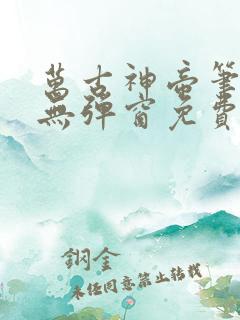 萬古神帝筆
無彈窗免費
鋼金
未任同意禁止轉載